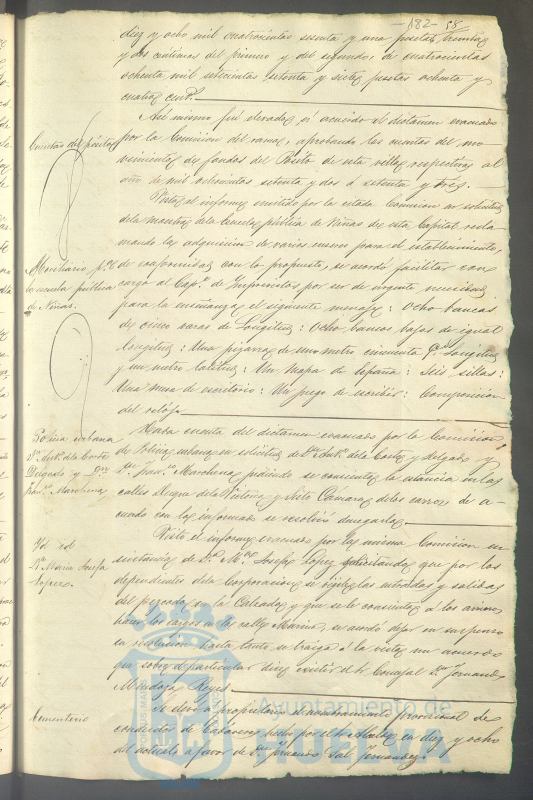 182 58
diez y ocho mil cuatrocientas sesenta y una pesetas treinta
y dos centimos del primero y del segundo, de cuatrocientas
ochenta mil setecientas setenta y siete pesetas ochenta y
cuatro cent.s
Cuentas del pósito
Asi mismo fué elevado á acuerdo el dictámen evacuado
por la Comision del ramo, aprobando las cuentas del mo-
vimiento de fondos del Pósito de esta villa respectivas al
año de mil ochocientos setenta y dos á setenta y tres.
Visto el informe emitido por la citada Comision en solicitud
de la maestra de la Escuela pública de Niñas de esta Capital recla-
mando la adquisicion de varios enseres para el establecimiento,
Moviliario p.a
la escuela pública
de Niñas.
de conformidad con lo propuesto, se acordó facilitar con
cargo al Cap.o de Imprevistos por ser de urgente necesidad
para la enseñanza el siguiente menaje: Ocho bancas
de cinco varas de longitud: Ocho bancos bajos de igual
longitud: Una pizarra de un metro cincuenta longitud
y un metro latitud: Un mapa de España: Seis sillas:
Una mesa de escritorio: Un juego de escribir: Composicion
del reloj.
Policia urbana
D.n Ant.o de la Corte
Delgado y D.n
Fran.co Marchena
Dada cuenta del dictamen evacuado por la Comision
de Policia urbana en solicitud de D.n Ant.o de la Corte y delgado y
D.n Fran.co Marchena pidiendo se consienta la estancia en las
calles Duque de la Victoria y de los carros de a-
cuerdo con lo informado se resolvió denegarla.
Id. id.
D.a Maria Josefa
Lopez.
Visto el informe evacuado por la misma Comision en
instancia de D.a M.a Josefa Lopez solicitando que por los
dependientes de la Corporacion se las entradas y salidas
del pescado en la Calzada y que se le consienta a los arrieros
hacer los cargos en la calle Marina, se acordó dejar en suspenso
su resolucion hasta tanto se traiga á la vista un acuerdo
que sobre el particular dice existir el Sr Concejal D.n Fernando
Mendoza Reyes
Cementerio
Se elevó a propietario el nombramiento provisional de
conductor de Cadáveres hecho por el Sr Alcalde en diez y ocho
del actual a favor de D.n Fernando Fernandez.
Ayuntamiento de
HUELVA